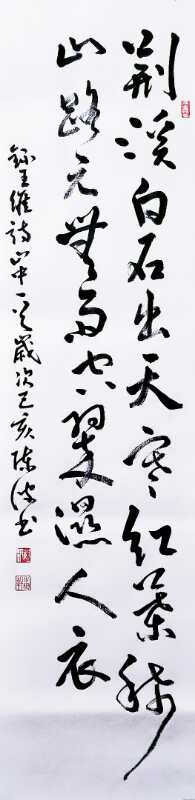 荆溪白石出天寒红叶稀
山路元无雨空翠湿人衣
録王维诗山中一首岁次己亥陈波书